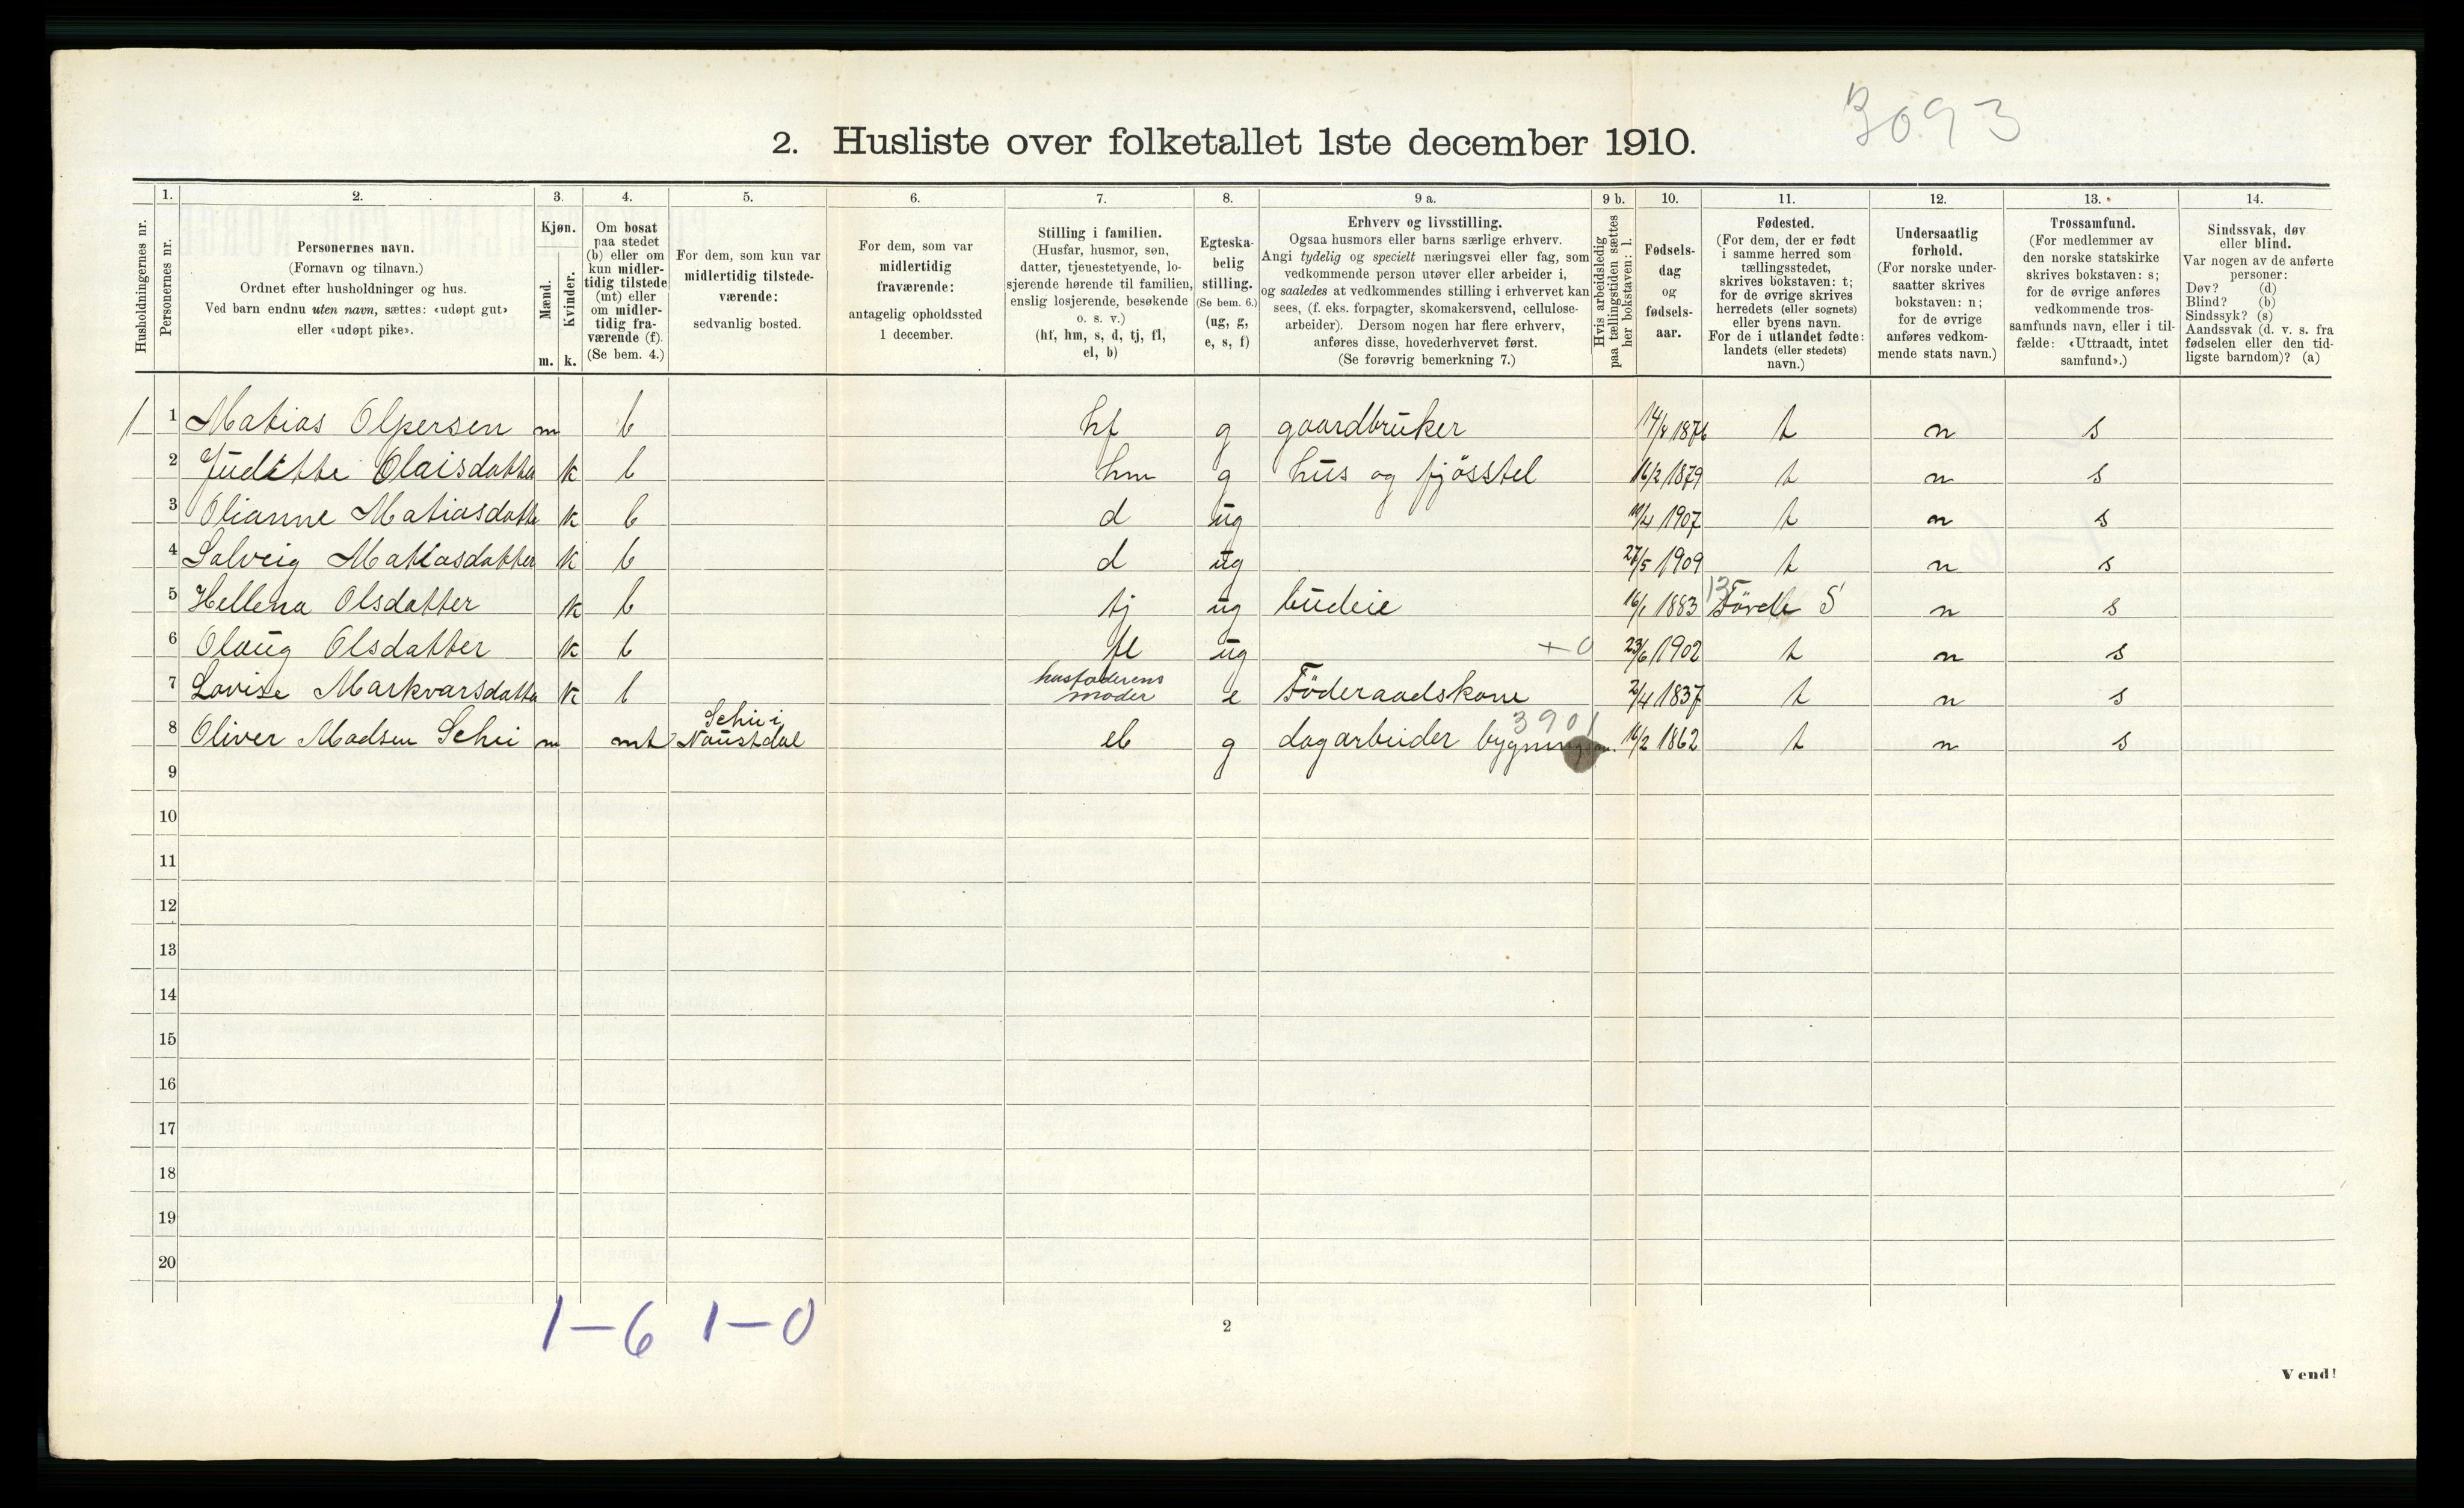 3093
2. Husliste over folketallet 1ste december 1910.
Husholdningernes nr.
1.
Personernes nr.
2.
Personernes navn.
(Fornavn og tilnavn.)
Ordnet efter husholdninger og hus.
Ved barn endnu uten navn, sættes: «udøpt gut»
eller «udøpt pike».
3.
Kjøn.
Mænd.
Kvinder.
m. k.
4.
Om bosat
paa stedet
(b) eller om
kun midler-
tidig tilstede
(mt) eller
om midler-
tidig fra-
værende (f).
(Se bem. 4.)
5.
For dem, som kun var
midlertidig tilstede-
værende:
sedvanlig bosted.
6.
For dem, som var
midlertidig
fraværende:
antagelig opholdssted
1 december.
7.
Stilling i familien.
(Husfar, husmor, søn,
datter, tjenestetyende, lo-
sjerende hørende til familien,
enslig losjerende, besøkende
o. s. v.)
(hf, hm, s, d, tj, fl,
el, b)
8.
Egteska-
belig
stilling.
(Se bem. 6.)
(ug, g,
e, s, f)
9 a.
Erhverv og livsstilling.
Ogsaa husmors eller barns særlige erhverv.
Angi tydelig og specielt næringsvei eller fag, som
vedkommende person utøver eller arbeider i,
og saaledes at vedkommendes stilling i erhvervet kan
sees, (f. eks. forpagter, skomakersvend, cellulose-
arbeider). Dersom nogen har flere erhverv,
anføres disse, hovederhvervet først.
(Se forøvrig bemerkning 7.)
9 b.
Hvis arbeidsledig
paa tællingstiden sættes
her bokstaven: l.
10.
Fødsels-
dag
og
fødsels-
aar.
11.
Fødested.
(For dem, der er født
i samme herred som
tællingsstedet,
skrives bokstaven: t;
for de øvrige skrives
herredets (eller sognets)
eller byens navn.
For de i utlandet fødte:
landets (eller stedets)
navn.)
12.
Undersaatlig
forhold.
(For norske under-
saatter skrives
bokstaven: n;
for de øvrige
anføres vedkom-
mende stats navn.)
13.
Trossamfund.
(For medlemmer av
den norske statskirke
skrives bokstaven: s;
for de øvrige anføres
vedkommende tros-
samfunds navn, eller i til-
fælde: «Uttraadt, intet
samfund».)
14.
Sindssvak, døv
eller blind.
Var nogen av de anførte
personer:
Døv? (d)
Blind? (b)
Sindssyk? (s)
Aandssvak (d. v. s. fra
fødselen eller den tid-
ligste barndom)? (a)
1 1 Matias Olpersen m b hf g gaardbruker 14/8 1876 t n s
2 Juditte Olaisdatter k b hm g hus og fjösstel 16/2 1879 t n s
3 Olianne Matiasdatte k b d ug 1907 t n s
4 Solveig Matiasdatter k b d ug 27/5 1909 t n s
5 Hellena Olsdatter k b tj ug budeie 16/1 1883 13 Förde S n s
6 Olaug Olsdatter k b fl ug +0 23/6 1902 t n s
7 Lovise Markvarsdatte k b husfaderens moder e Föderaadskone 2/4 1837 t n s
8 Oliver Madsen m mt i Naustdal el g dagarbeider 3901 16/2 1862 t n s
9
10
11
12
13
14
15
16
17
18
19
20
1–6 1–0
2
Vend!